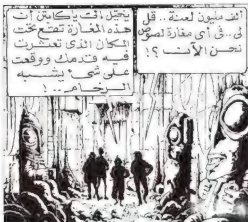 ألف مليون لعنة.. قل
لى.. فى أى مغارة لصوص
نحن الآن ؟!
يخيل إلىّ ياكابتن أن
هذه المغارة تقع تحت
المكان الذى تعثرت
فيه قدمك ووقعت
على شىء يشبه
الرخام..!!